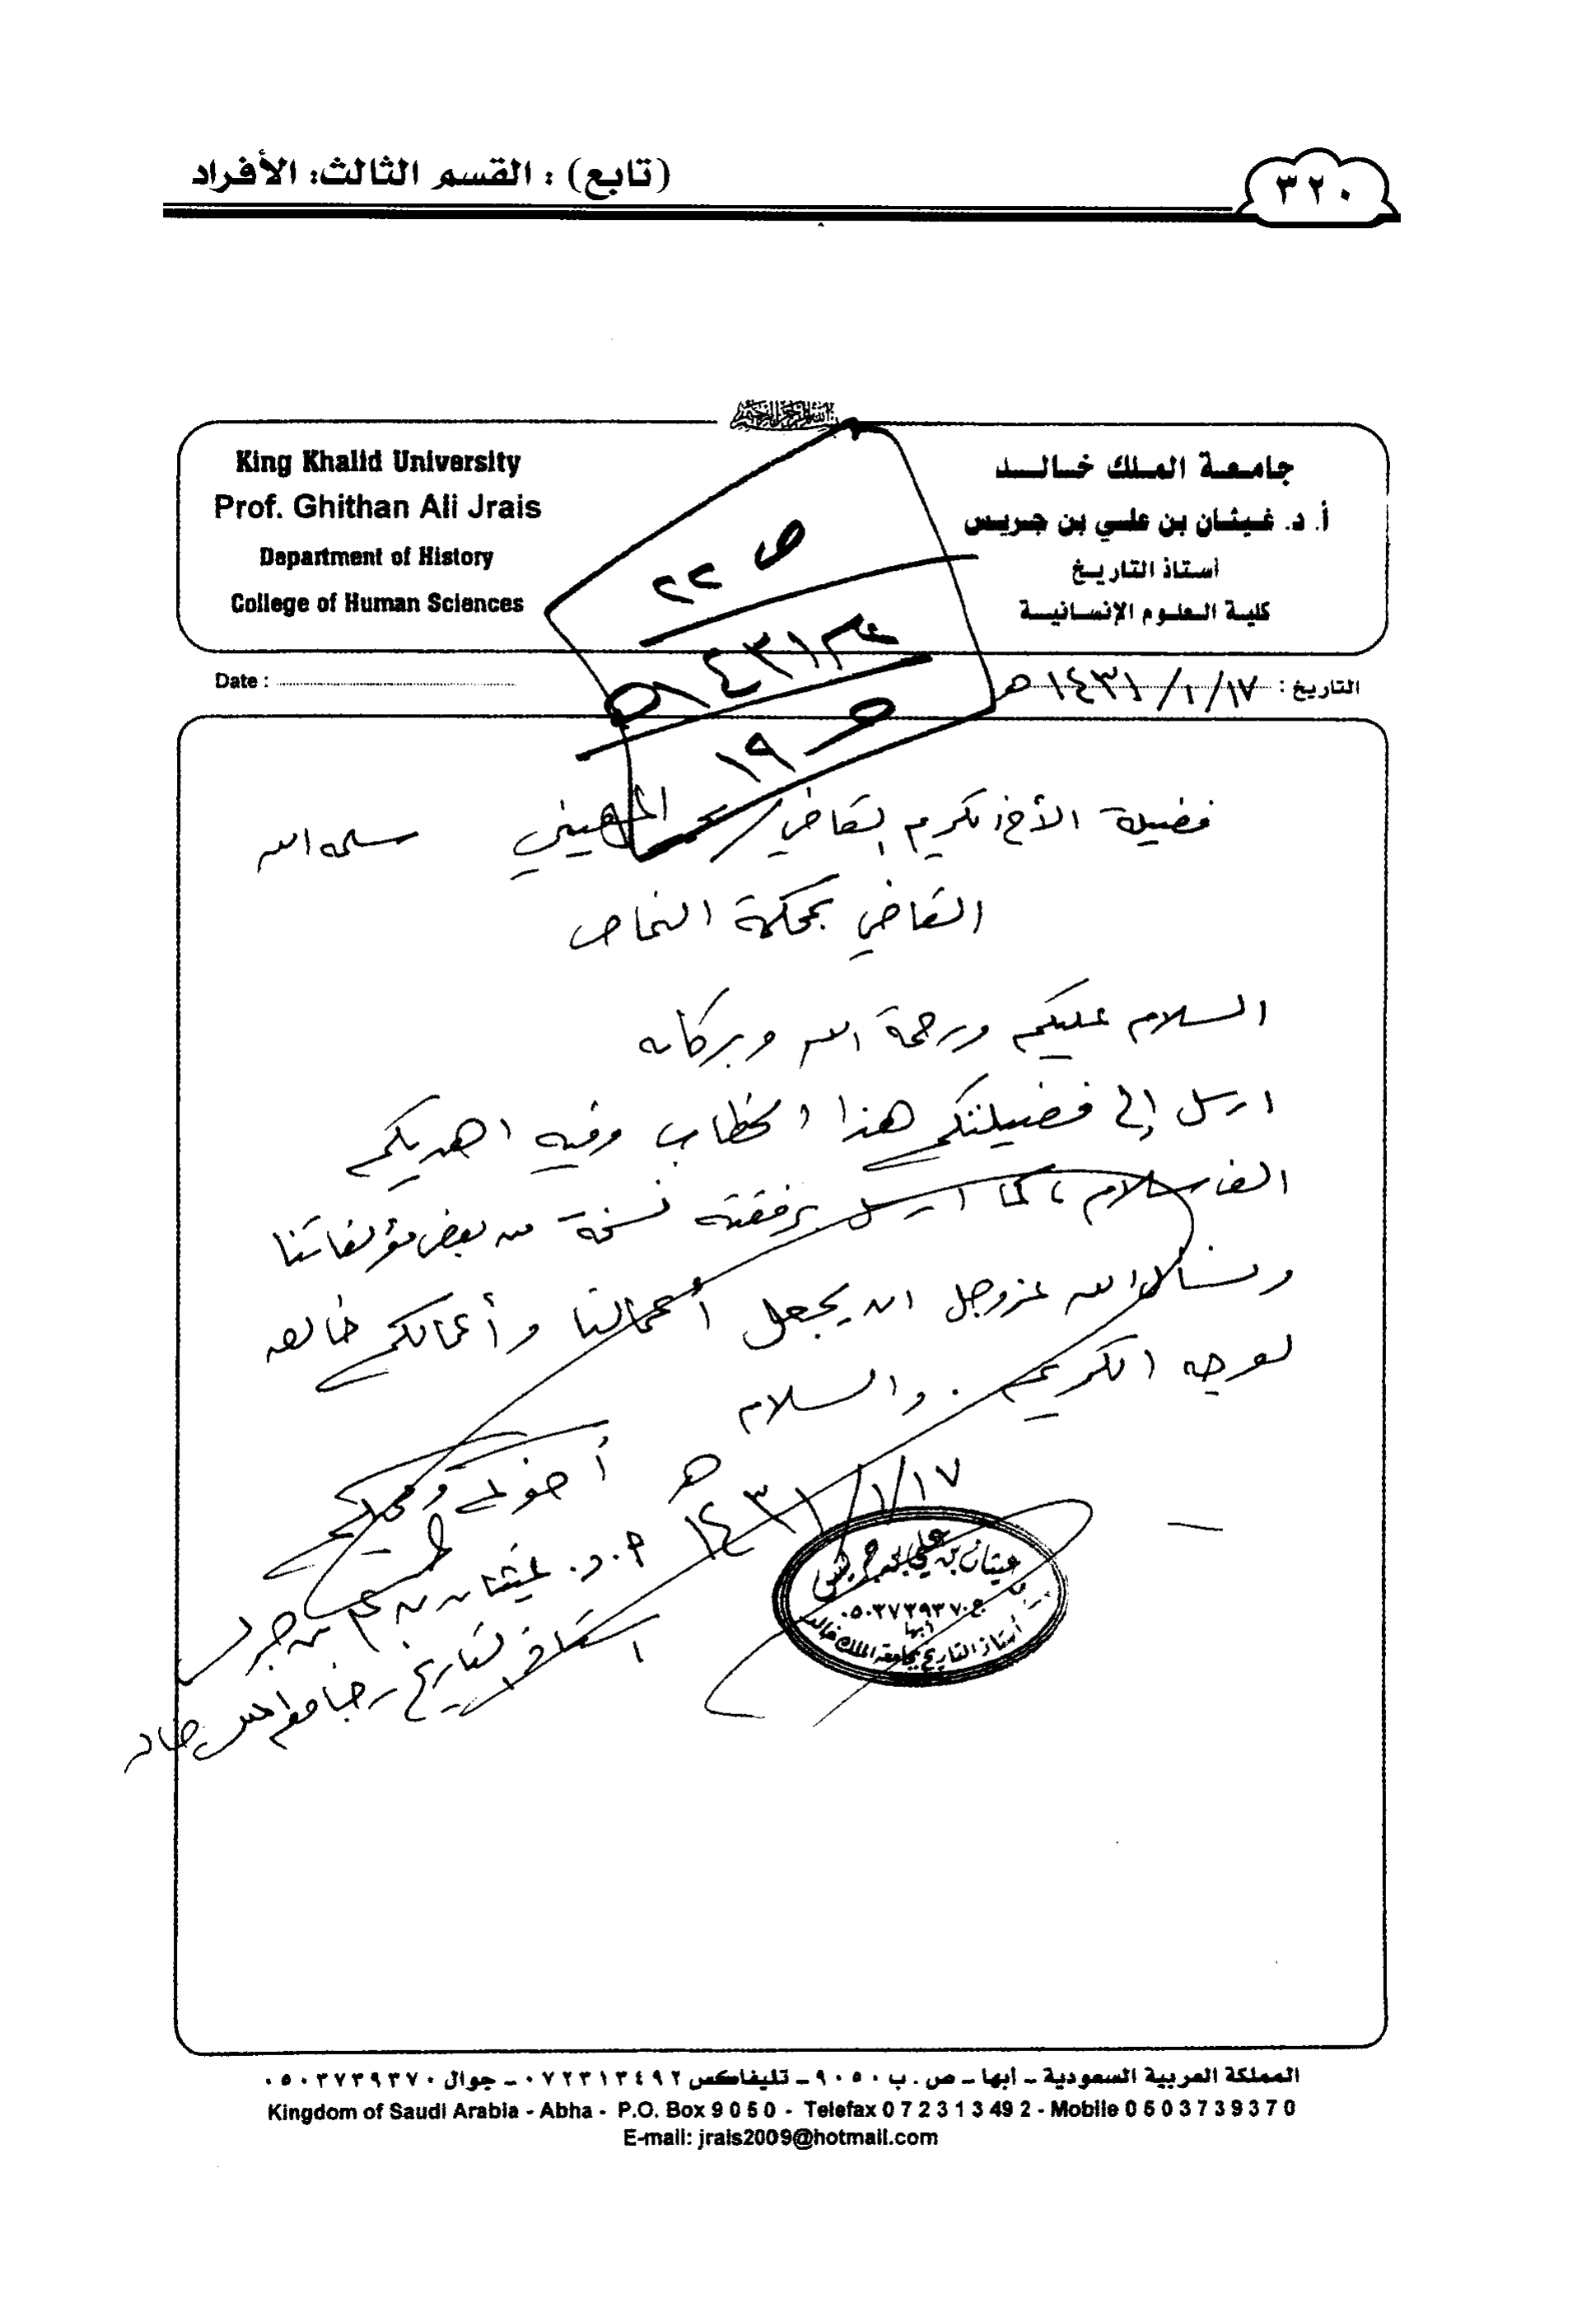 ٣٢٠
(تابع) : القسم الثالث: الأفراد
بسم الله الرحمن الرحيم
جامعة الملك خالد
أ. د. غيثان بن علي بن جريس
أستاذ التاريخ
كلية العلوم الإنسانية
King Khalid University
Prof. Ghithan Ali Jrais
Department of History
College of Human Sciences
ص ٢٢
ع ٣ ١٤٣١هـ
ص ١٩
التاريخ : ١٤٣١/١/١٧هـ
Date :
فضيلة الأخ الكريم القاضي/ سلمه الله
القاضي بمحكمة النماص
السلام عليكم ورحمة الله وبركاته
ارسل إلى فضيلتكم هذا الخطاب وفيه اهديكم
الف سلام، كما ارسل برفقته نسخة من بعض مؤلفاتنا
ونسأل الله عزوجل ان يجعل أعمالنا وأعمالكم خالصه
لوجه الكريم . والسلام
١٤٣١/١/١٧ هـ
أخوكم ومحبكم
أ.د. غيثان بن علي بن جريس
استاذ التاريخ بجامعة الملك خالد
غيثان بن علي بن جريس
ج ٠٥٠٣٧٣٩٣٧٠
أبها
أستاذ التاريخ بجامعة الملك خالد
المملكة العربية السعودية – أبها – ص . ب ٩٠٥٠ – تليفاكس ٠٧٢٣١٣٤٩٢ – جوال ٠٥٠٣٧٣٩٣٧٠
Kingdom of Saudi Arabia - Abha - P.O. Box 9 0 5 0 - Telefax 0 7 2 3 1 3 49 2 - Mobile 0 5 0 3 7 3 9 3 7 0
E-mail: jrais2009@hotmail.com